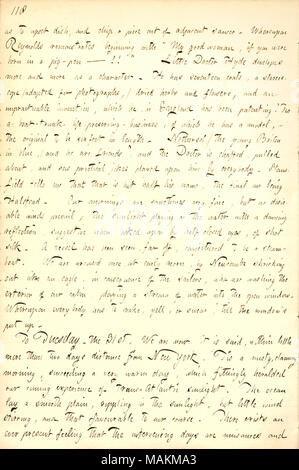 118
as to upset dish, and chip a piece out of adjacent saucer. Whereupon
Reynolds remonstrates beginning with "My good woman, if you were
born in a pig-pen —!!" Little Doctor Hyde develops
more and more as a character. He has seventeen coats, a stereos-
cope (adapted for photographs,) dried herbs and flowers, and an
impracticable invention, which he, in England has been patenting. 'Tis
a boat-trunk life preserving business, of which he has a model,
the original to be six feet in length. the young Briton
in blue, and he are friends, and the Doctor is chaffed, pulled
about, and has practical jokes played upon him by everybody.
field tells me that that is not half his name, the final one being
Halstead. Our mornings are sometimes very fine, but no desir-
able winds prevail, the sunlight playing in the water with a dancing
reflection, suggestive when looked upon by half closed eyes, of shot
silk. A vessel has been seen, far off, conjectured to be a steam-
boat. We are aroused once at early morn, by Newcombe shrieking
out there an eagle, in consequence of the sailors, who are washing the
exterior of our cabin, pouring a stream of water into the open window.
Whereupon everybody has to wake, yell, or swear, till the window's
put up.
To Tuesday. The 31st. We are now it is said, within little
more than two days distance from New York. 'Tis a lovely, flaming
morning, succeeding a very warm day, which fittingly heralded
our coming experience of Transatlantic sunlight. The ocean
lay a smooth plain, rippling in the sunlight, but little wind
stirring, and that favourable to our course. There exists an
ever present feeling that the intervening days are nuisances and